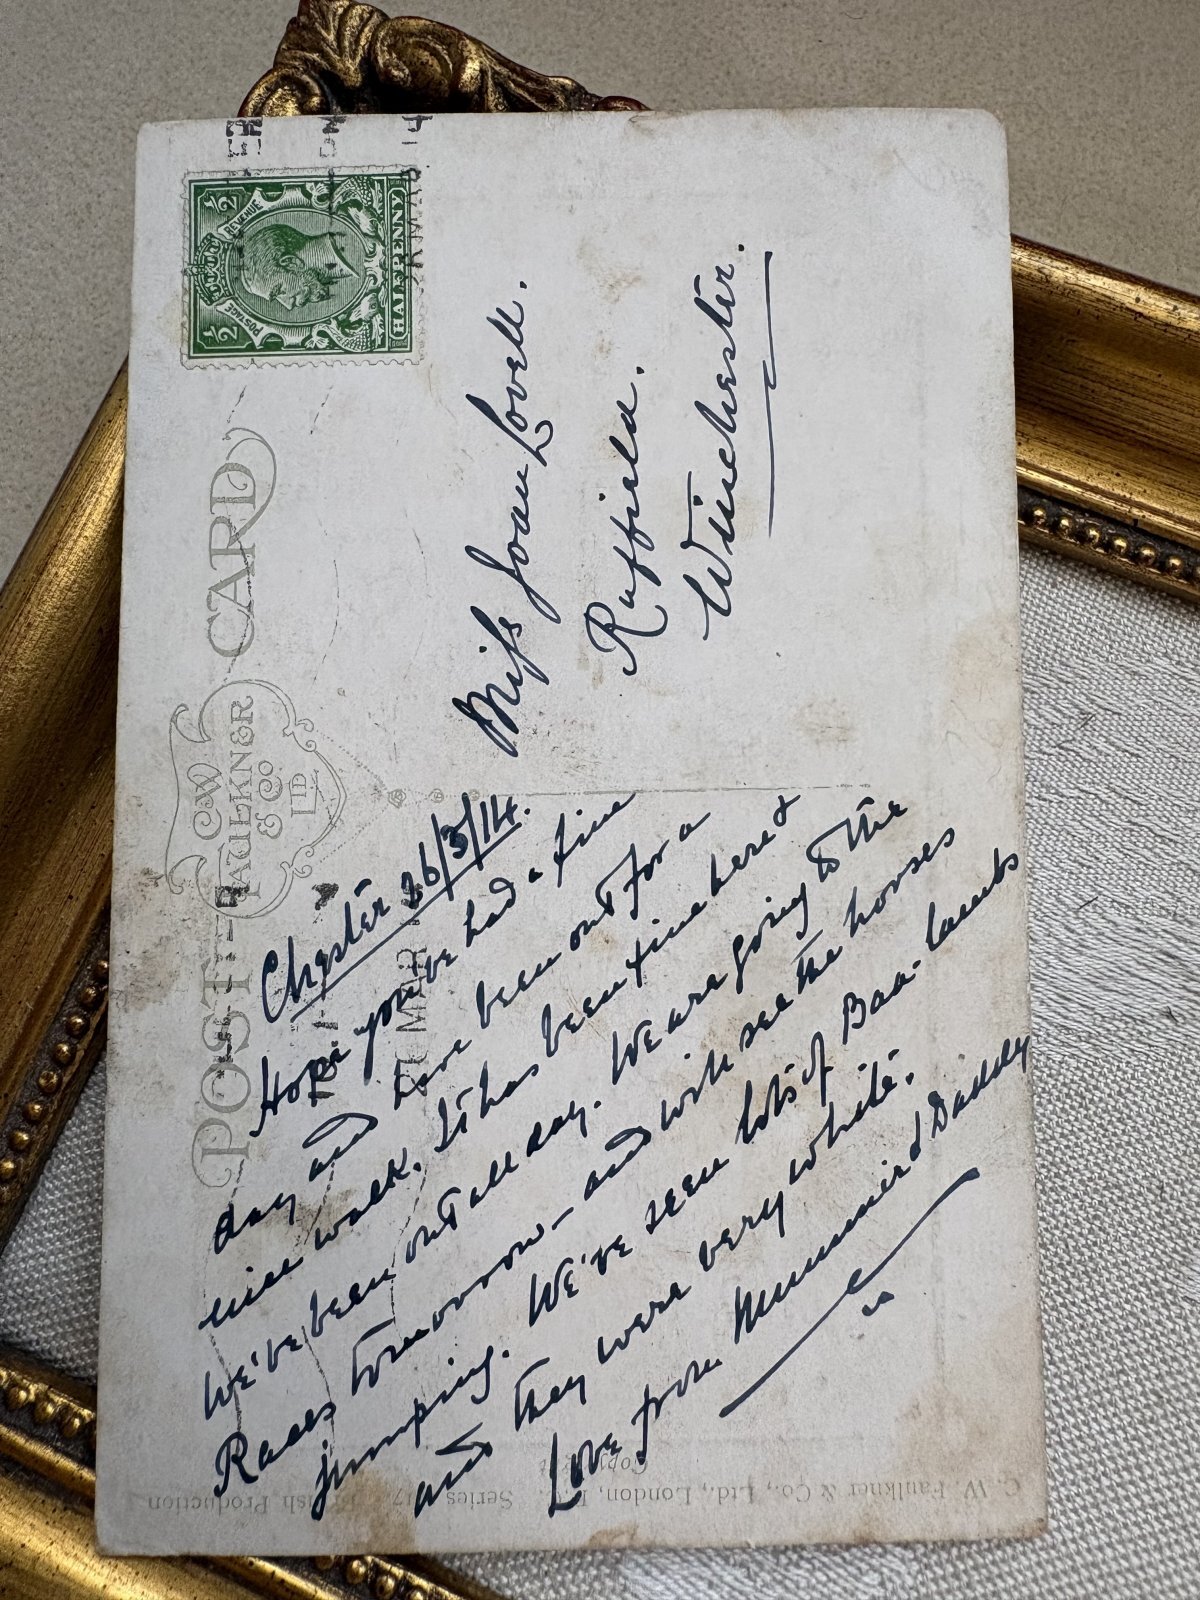 POST CARD
C.W. FAULKNER & CO LTD
½ ½
POSTAGE REVENUE
HALFPENNY
MAR 14
Chester 26/3/14.
Hope you've had a fine
day and have been out for a
nice walk. It has been fine here &
We've been out all day. We are going to the
Races tomorrow – and will see the horses
jumping. We've seen lots of Baa-lambs
and they were very white.
Love from Mummie & Daddy
Miss Joan Lovell.
Ruffield.
Winchester.
C. W. Faulkner & Co., Ltd., London, E.C. Series British Production
Copyright